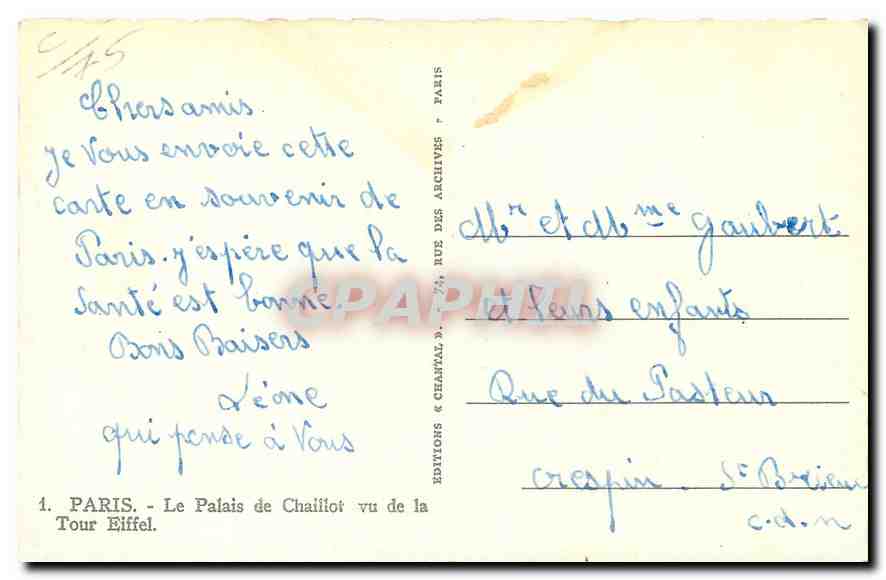 Chers amis
Je Vous envoie cette
carte en souvenir de
Paris. j'espère que la
Santé est bonne.
Bons Baisers
Léone
qui pense à Vous
1. PARIS. - Le Palais de Chaillot vu de la
Tour Eiffel.
EDITIONS « CHANTAL ». - 74, RUE DES ARCHIVES - PARIS
CPAPHIL
Mr et Mme Gaubert
et leurs enfants
Rue du Pasteur
Crespin. St Brieuc
c.d.n